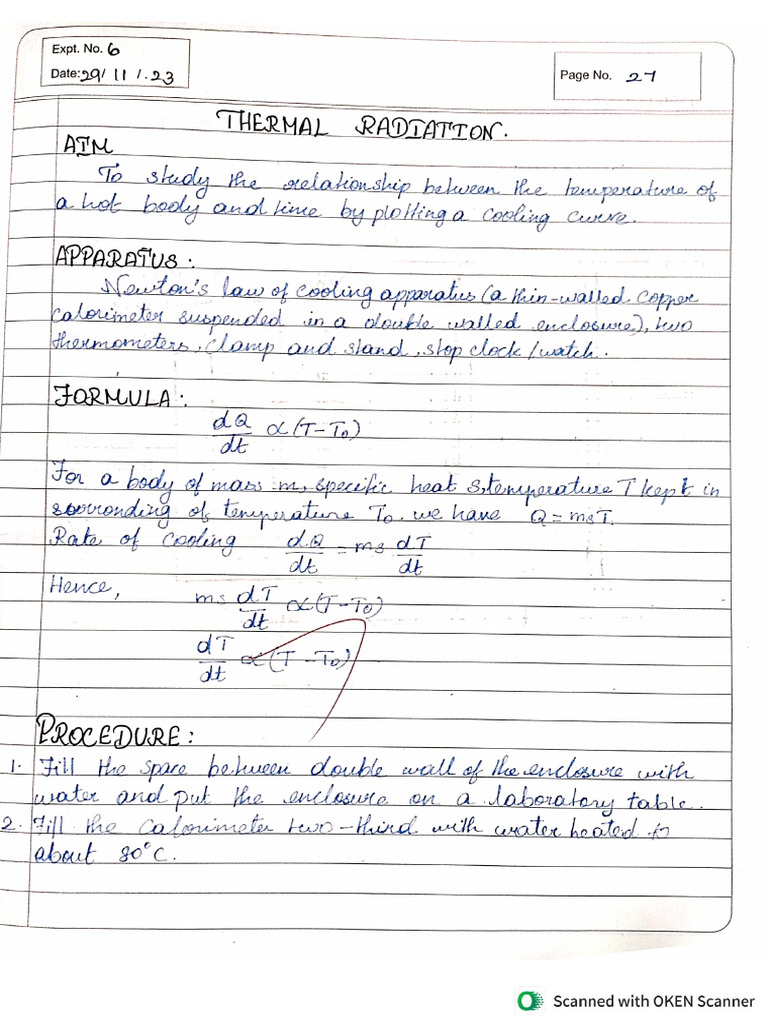 Expt. No. 6
Date: 29/ 11 /.23
Page No. 27
THERMAL RADIATION.
AIM
To study the relationship between the temperature of
a hot body and time by plotting a cooling curve.
APPARATUS:
Newton's law of cooling apparatus (a thin-walled copper
calorimeter suspended in a double walled enclosure), two
thermometers, clamp and stand, stop clock/watch.
FORMULA:
dQ/dt ∝ (T-T₀)
For a body of mass m, specific heat s, temperature T kept in
sorronding of temperature T₀. we have Q = msT.
Rate of cooling dQ/dt = ms dT/dt
Hence, ms dT/dt ∝ (T-T₀)
dT/dt ∝ (T-T₀)
PROCEDURE:
1. Fill the spare between double wall of the enclosure with
water and put the enclosure on a laboratory table.
2. Fill the calorimeter two-third with water heated to
about 80°C.
Scanned with OKEN Scanner